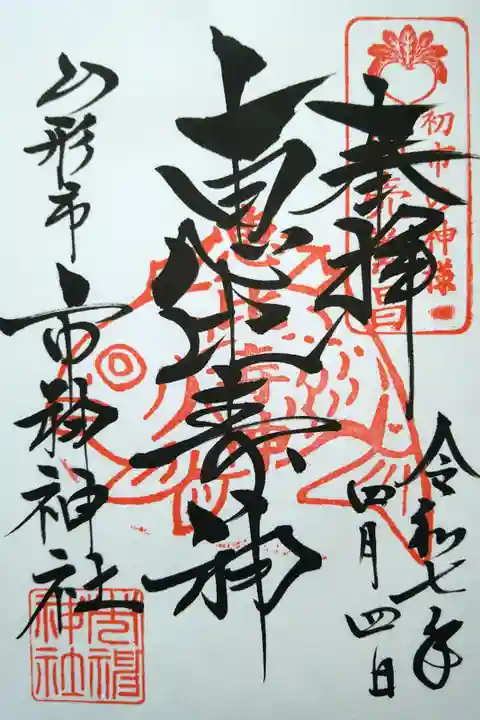 初市の神様
奉拝
令和七年
四月四日
恵比寿神
山形市
市神神社
神社